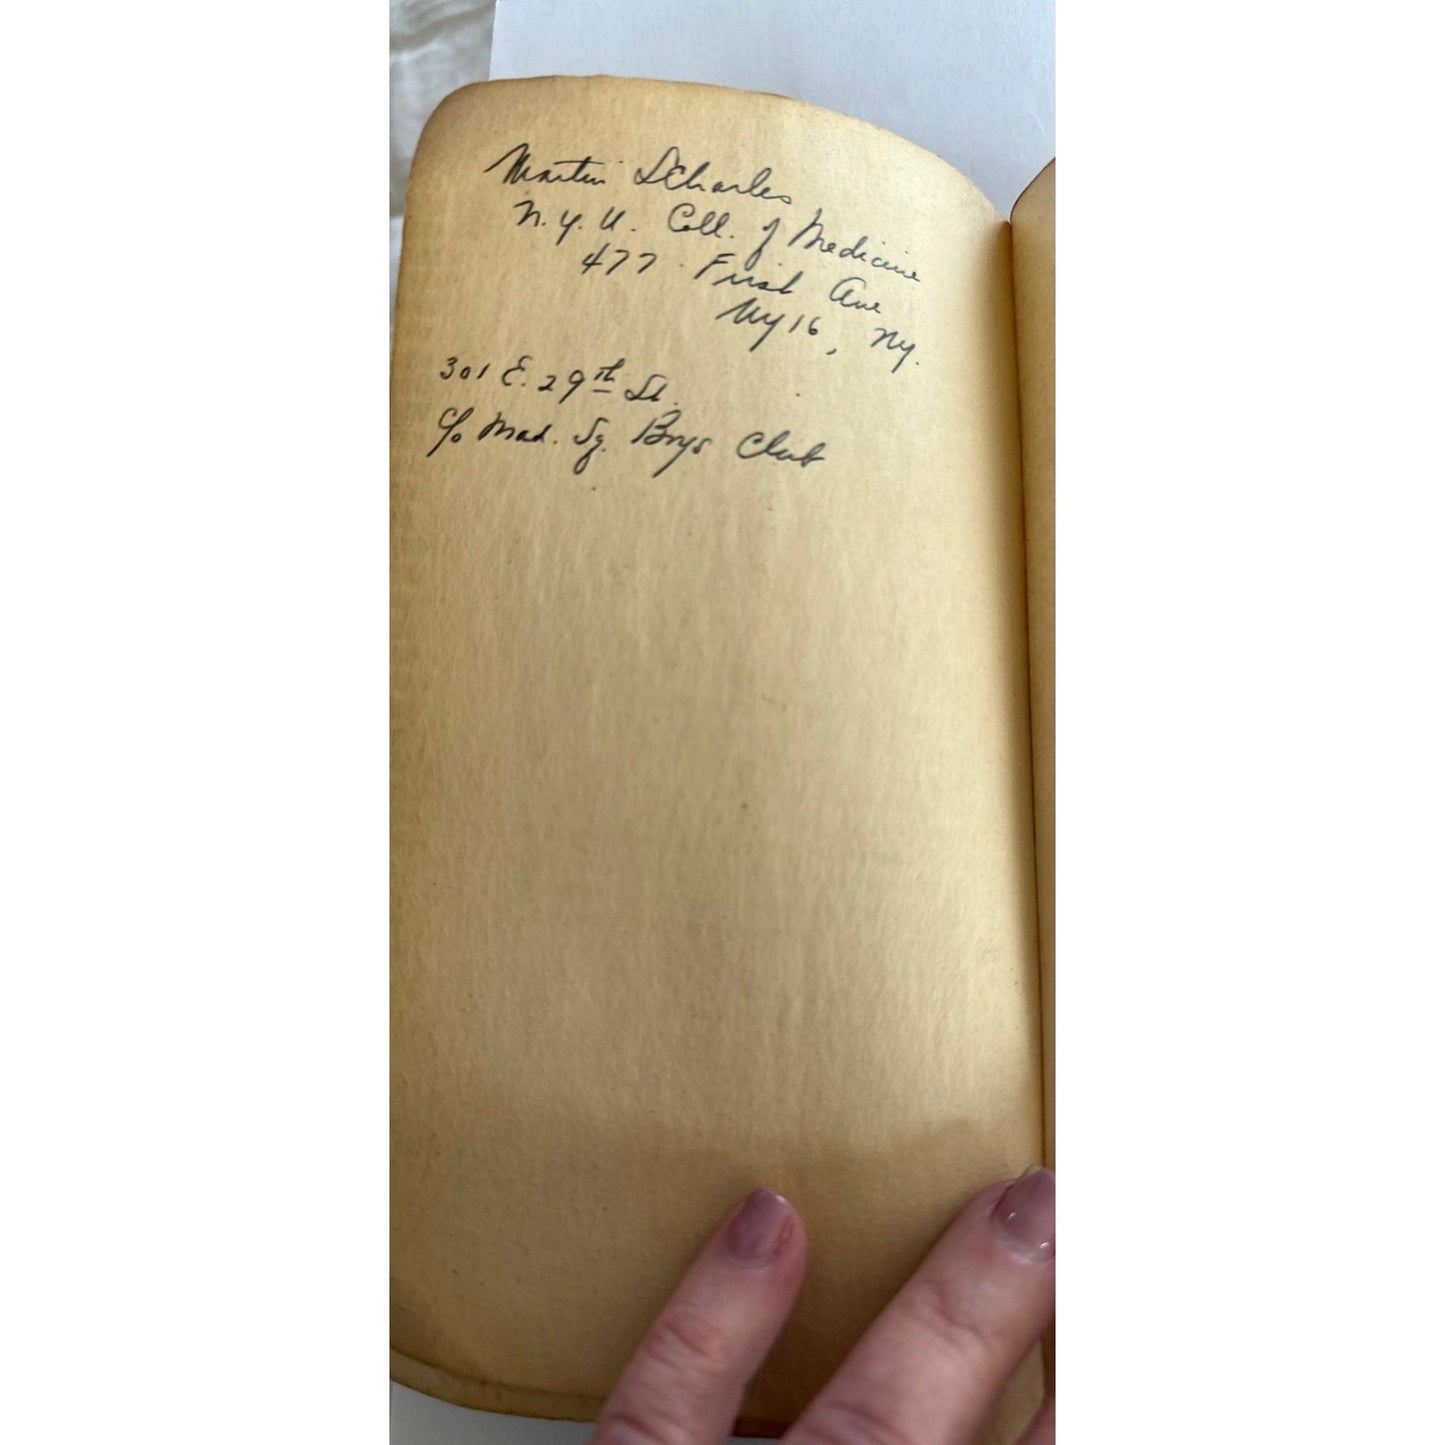 Martin SCharles
N.Y.U. Coll. of Medicine
477 First Ave
NY 16, NY.
301 E. 29th St.
c/o Mad. Sq. Boys Club